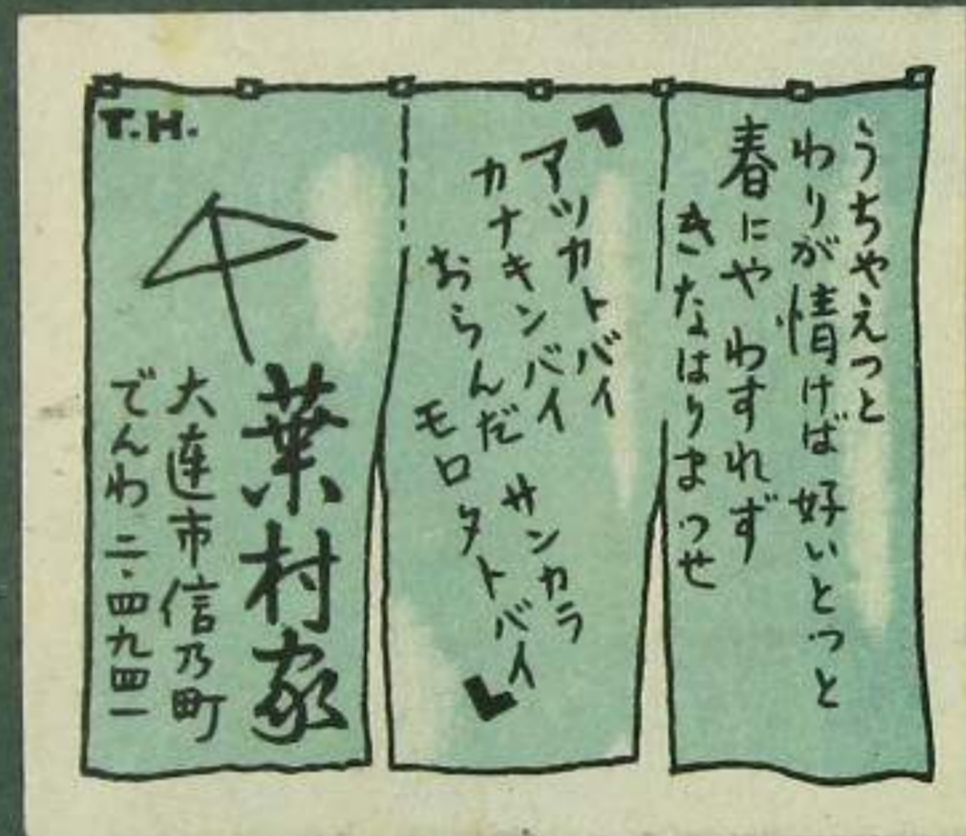 うちやえつと
わりが情けば 好いとつと
春にや わすれず
きなはりまつせ
「アツカトバイ
カナキンバイ サンカラ
おらんだ
モロタトバイ」
T.H.
葉村家
大連市信乃町
でんわ 二・四九四一